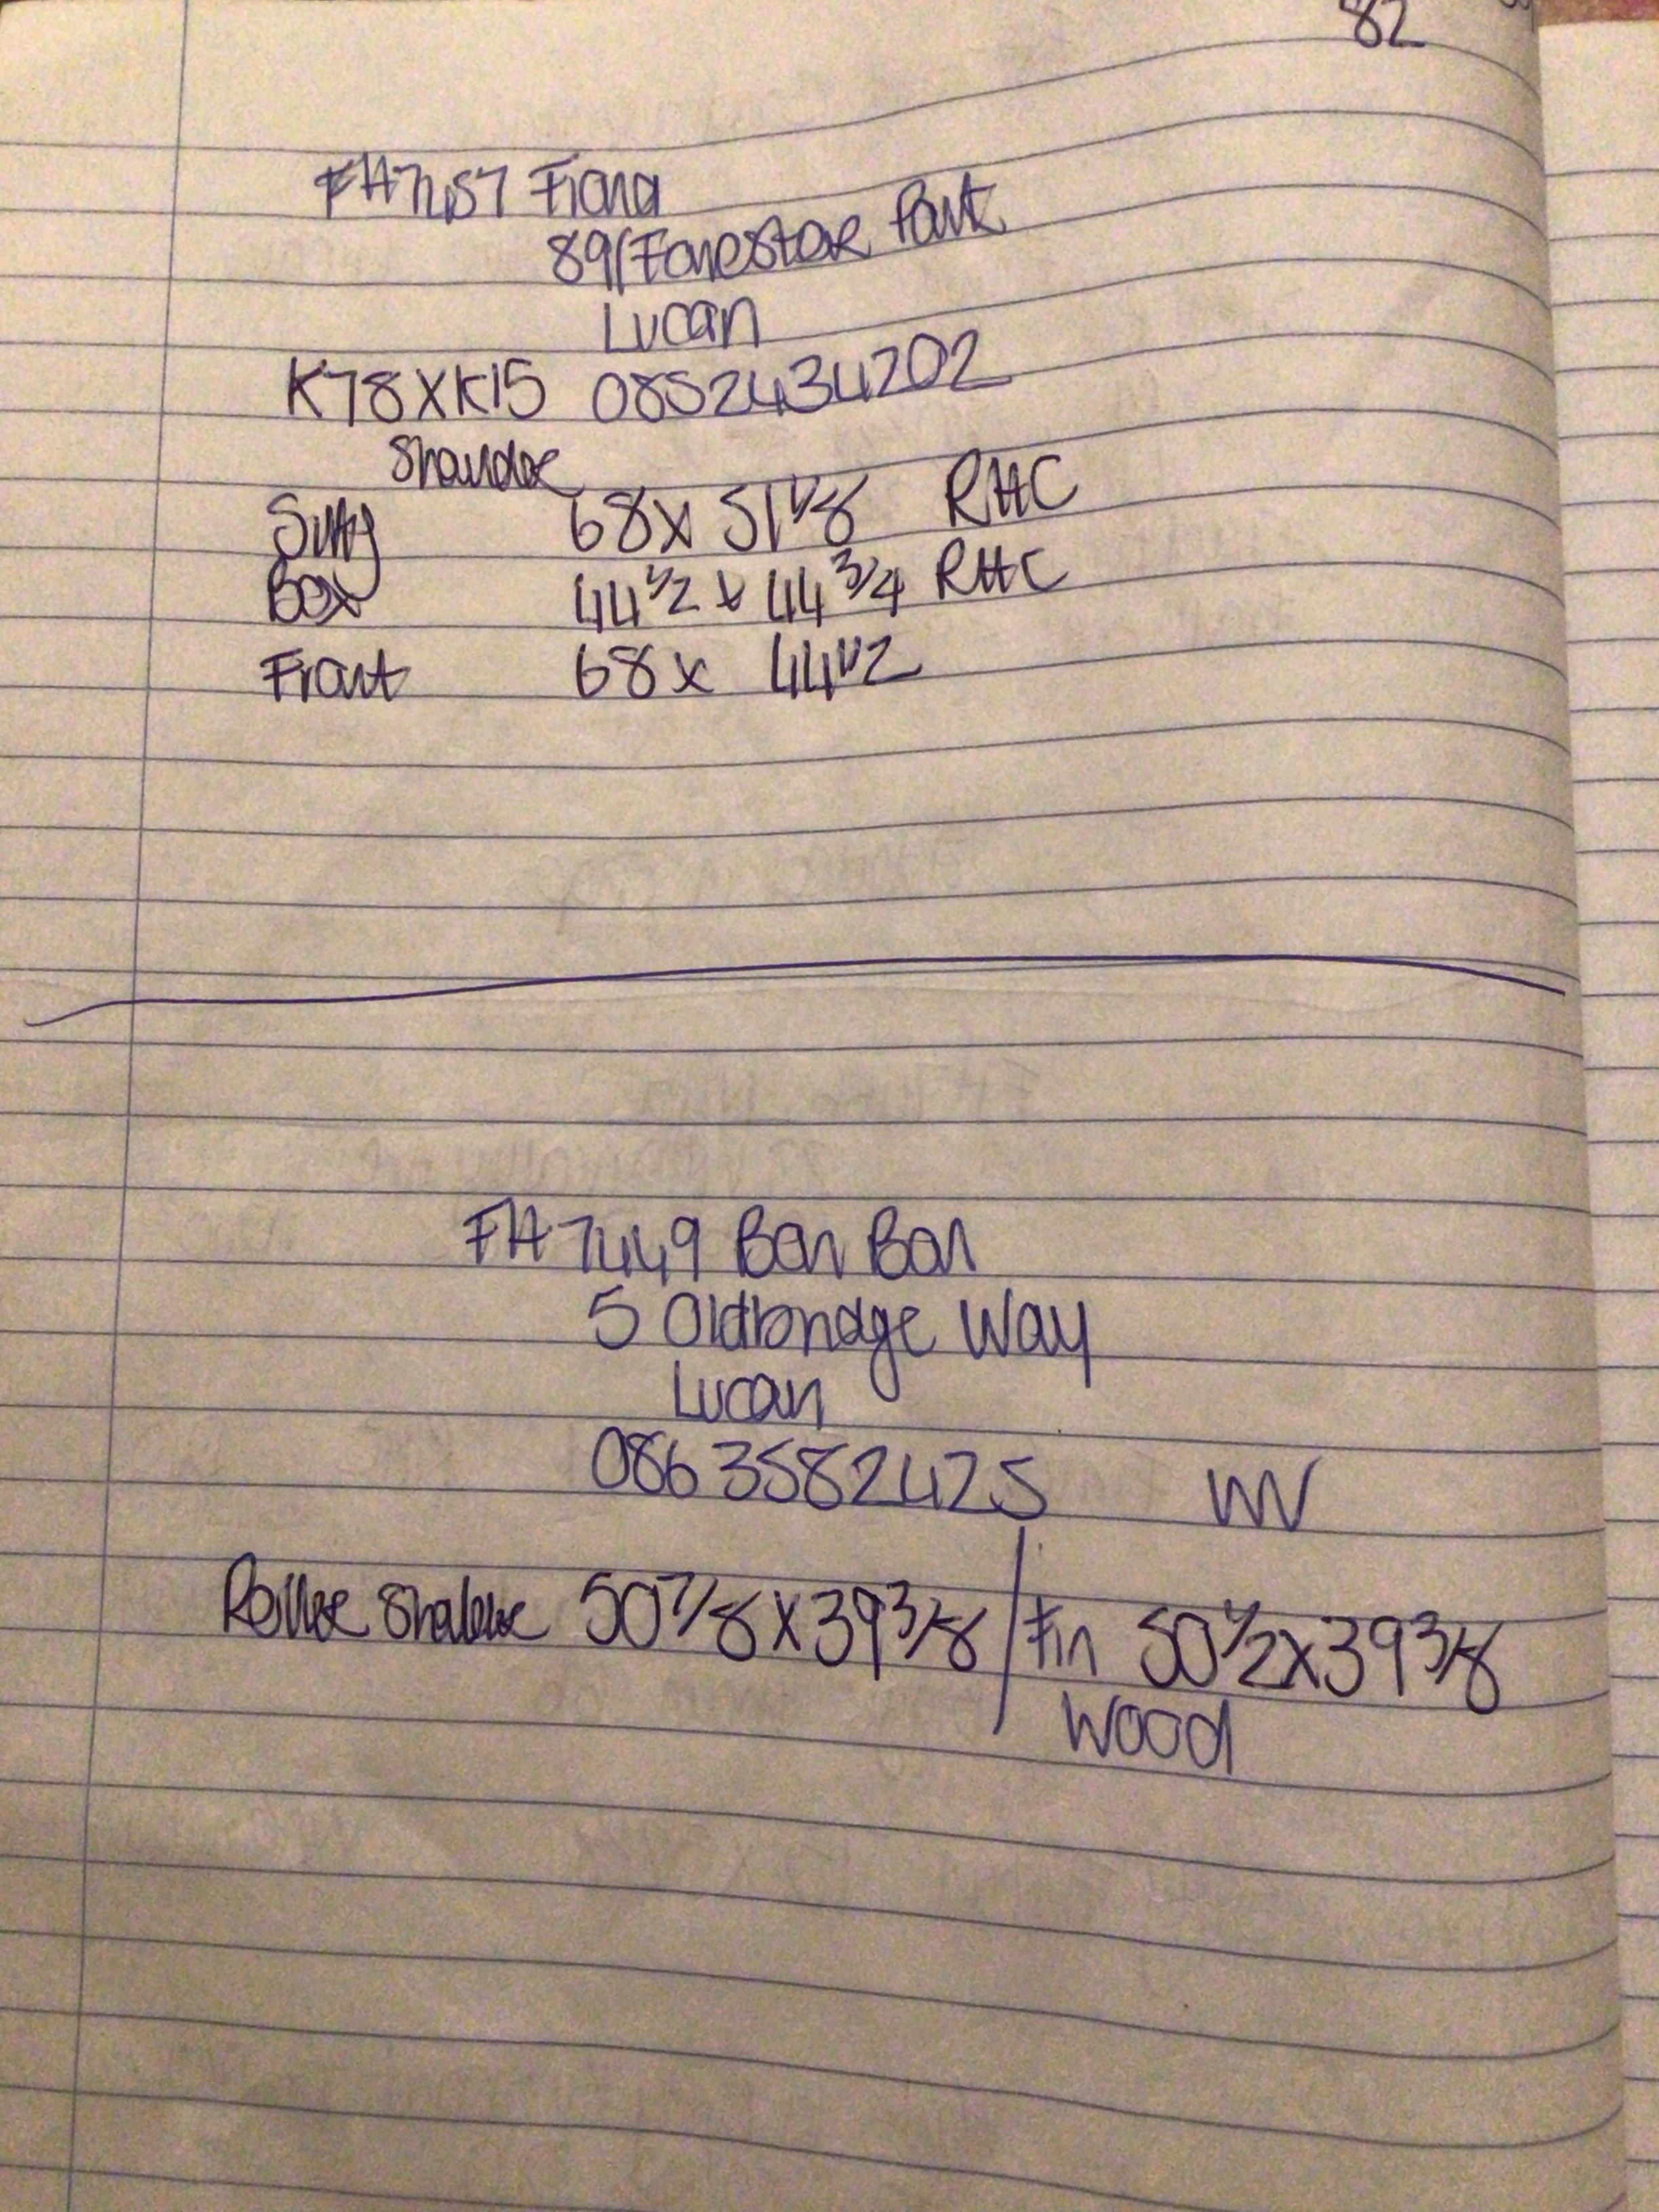 82
FH7457 Fiona
89 Forester Park
Lucan
K78XK15 0852434202
68 x 51 1/8 RHC
Box 44 1/2 x 44 3/4 RHC
Front 68 x 44 1/2
FH7449 Bon Bon
5 Oldbridge Way
Lucan
0863582425
Roller 50 7/8 x 39 3/8 / Fin 50 1/2 x 39 3/8
Wood